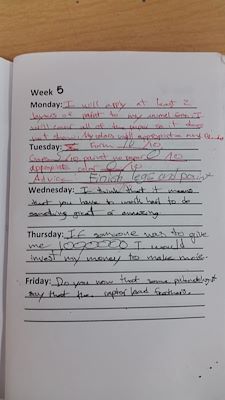 Week 5
Monday: I will apply at least 2
layers of paint to my animal form. I
will cover all of the paper so it does
not show. My colors will appropriate
Tuesday: Form 10/10
paint no paper 0/10
appropriate color 0/10
Advice Finish legs and paint
Wednesday: I think that it means
that you have to work hard to do
something great or amazing.
Thursday: If someone was to give
me 1000000 I would
invest my money to make more.
Friday: Do you now that some
say that the raptor had feathers.